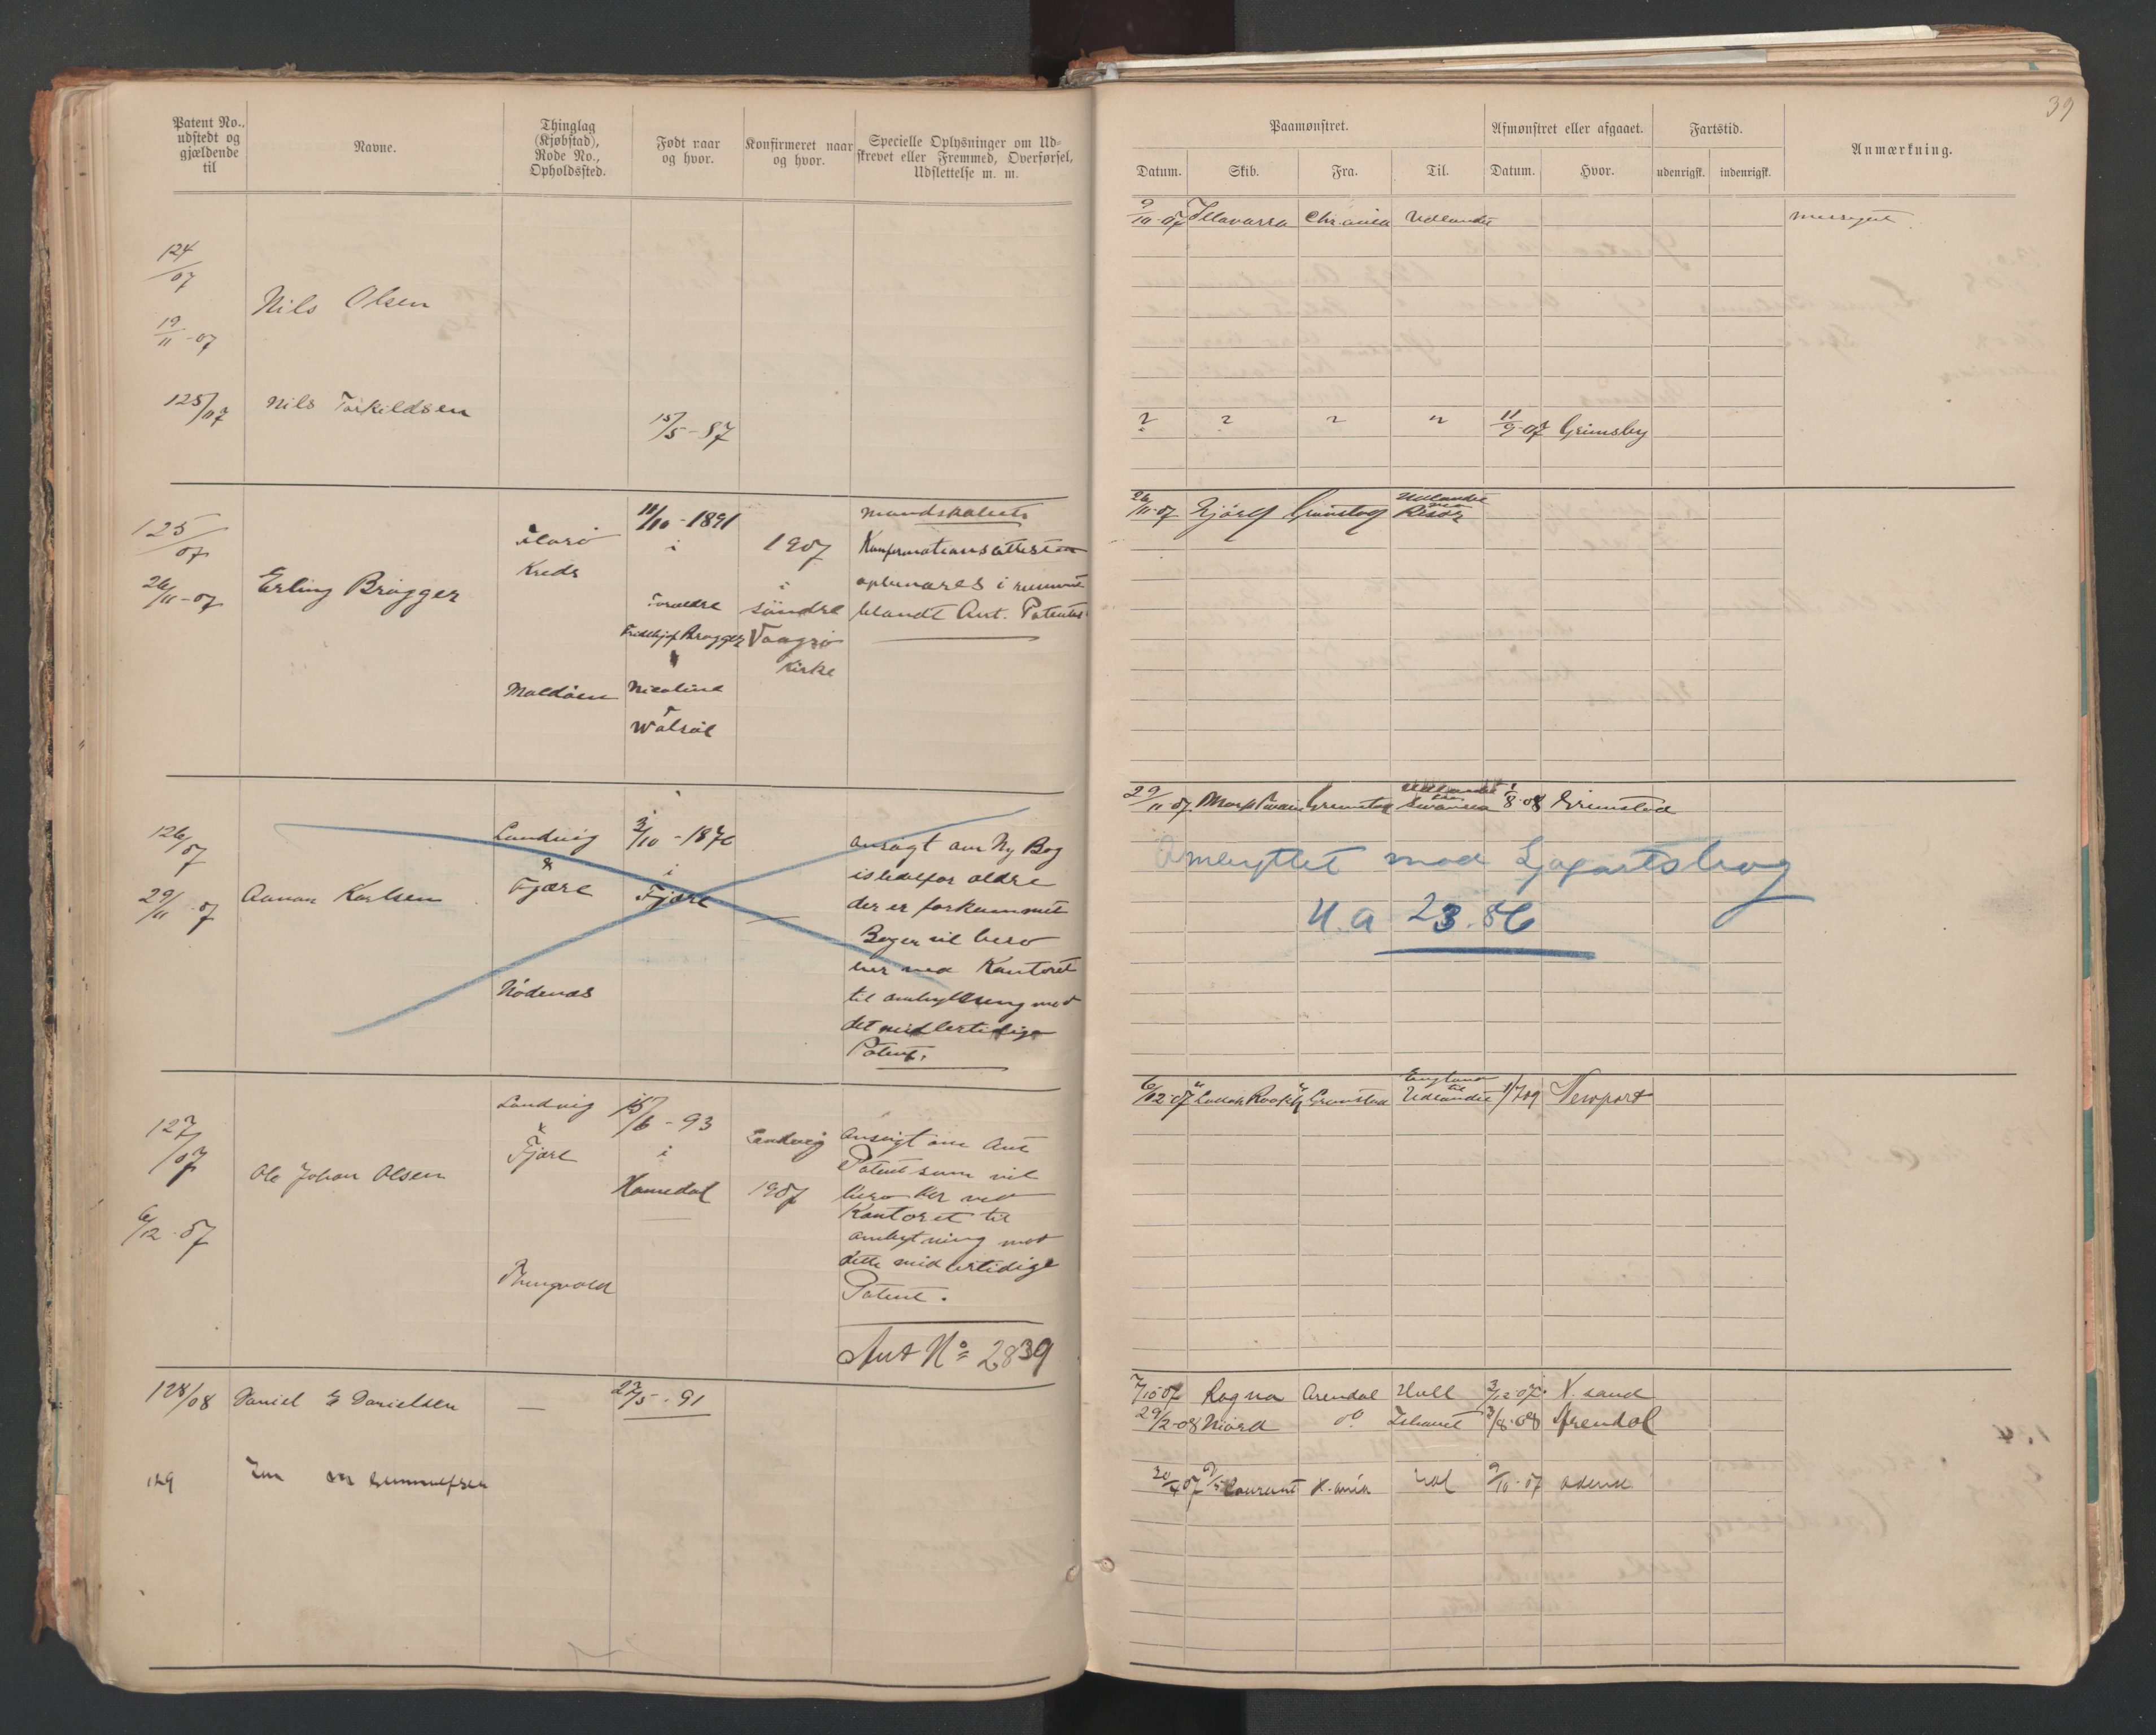 39
Patent No., udstedt og gjældende til
Navne.
Thinglag (Kjøbstad), Rode No., Opholdssted.
Født naar og hvor.
Konfirmeret naar og hvor.
Specielle Oplysninger om Udskrevet eller Fremmed, Overførsel, Udslettelse m. m.
Paamønstret.
Afmønstret eller afgaaet.
Fartstid.
Anmærkning.
Datum.
Skib.
Fra.
Til.
Datum.
Hvor.
udenrigsk.
indenrigsk.
124/07
19/11-07
Nils Olsen
9/10-07 Illavarra Chr.ania Udlandet
125/07 Nils Torkildsen 15/5-87
? ? " " 11/9-07 Grimsby
125/07
26/11-07
Erling Brügger
Florø
Kreds
Maldöen
11/10-1891
i
Foraldre
Fridthjof Brügger
Nicoline
1907
i
söndre
Vaagsö
Kirke
Mandskabets
Konfirmationsattesten
opbevares i
blandt Ant. Patenter
26/11-07 Grimstad Udlandet
126/07
29/11-07
Aanon Karlsen
Landvig
&
Fjære
Nödenæs
3/10-1870
i
Fjære
—
ansøgt om Ny Bog
istedefor ældre
der er forkommet
Bogen vil bero
her ved Kontoret
til ombytning mod
det midlertidige
Patent.
29/11-07 Grimstad Udlandet Swansea 1/8-08 Grimstad
Ombyttet mod Sjøfartsbog
U.a 23.86
127/07
6/12-07
Ole Johan Olsen
Landvig
&
Fjære
Bringsvold
15/6-93
i
Homedal
Landvig
1907
Ansøgt om Ant
Patent som vil
bero her ved
Kontoret til
ombytning mod
dette midlertidige
Patent.
Ant No 2839
6/12-07 Grimstad England til Udlandet 1/7 09 Newport
128/08 Daniel G Danielsen — 27/5-91
7/10-07 Ragna Arendal Hull 3/12-07 K.sand
29/2-08 Niord do Ishavet 3/8-08 Arendal
129
20/4 07 X.ania 9/10-07